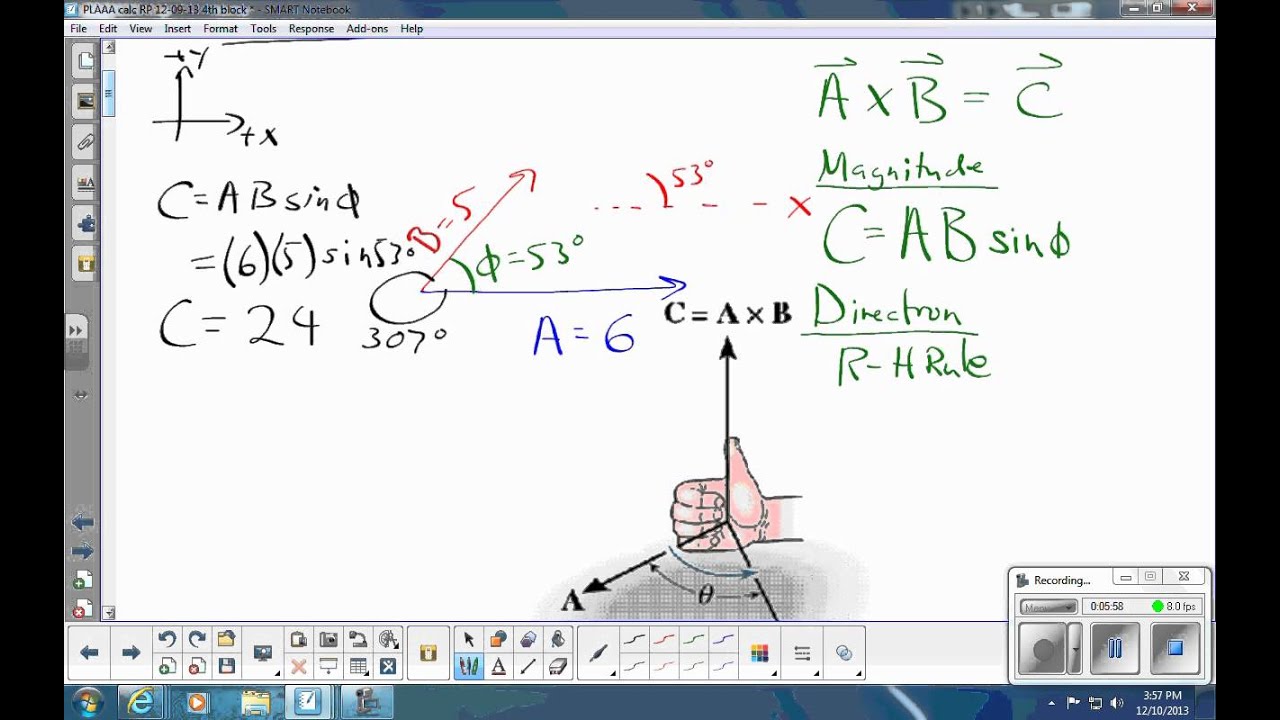 PLAAA calc RP 12-09-13 4th block * - SMART Notebook
File Edit View Insert Format Tools Response Add-ons Help
+y
+x
A × B = C
Magnitude
C = AB sin ϕ
Direction
R-H Rule
C = AB sin ϕ
= (6)(5) sin 53°
C = 24
B = 5
53°
x
ϕ = 53°
307°
A = 6
C = A × B
A
θ
Recording...
0:05:58
8.0 fps
3:57 PM
12/10/2013